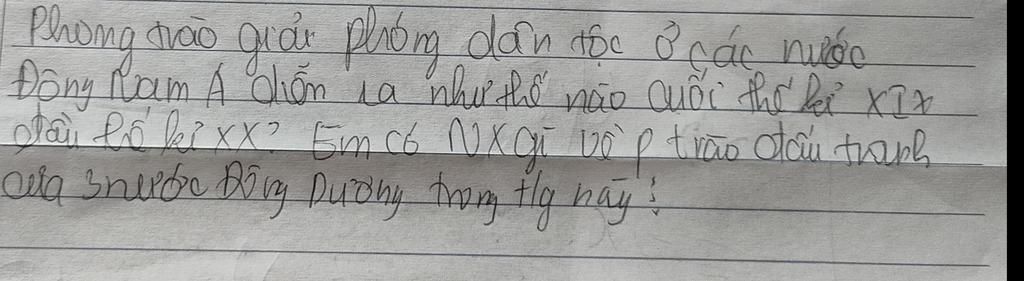 Phong trào giải phóng dân tộc ở các nước
Đông Nam Á diễn ra như thế nào cuối thế kỉ XIX
đầu thế kỉ XX? Em có NX gì về p trào đấu tranh
của 3 nước Đông Dương trong tg này?